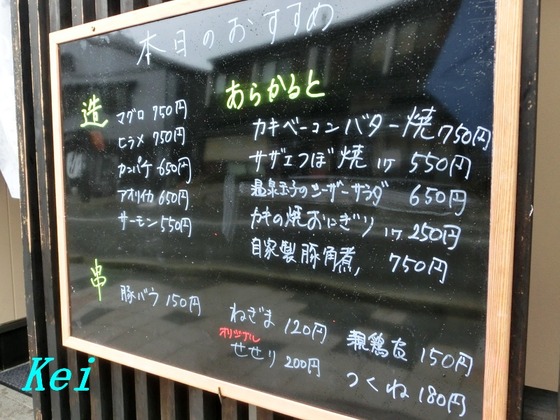 本日のおすすめ
造
マグロ 750円
ヒラメ 750円
カンパチ 650円
アオリイカ 650円
サーモン 550円
あらかると
カキベーコンバター焼 750円
サザエつぼ焼 1ケ 550円
温泉玉子のシーザーサラダ 650円
カキの焼おにぎり 1ケ 250円
自家製豚角煮 750円
串
豚バラ 150円
ねぎま 120円
オリジナル
せせり 200円
親鶏 150円
つくね 180円
Kei